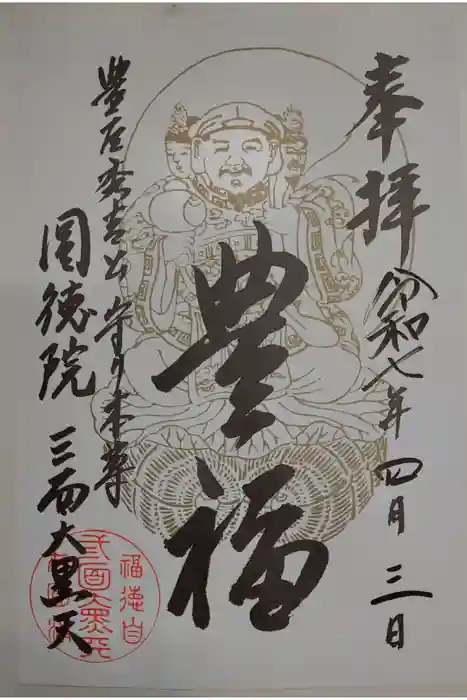 奉拝
令和七年四月三日
豊福
豊臣秀吉公守り本尊
圓徳院
三面大黒天
三面大黒天
福徳自